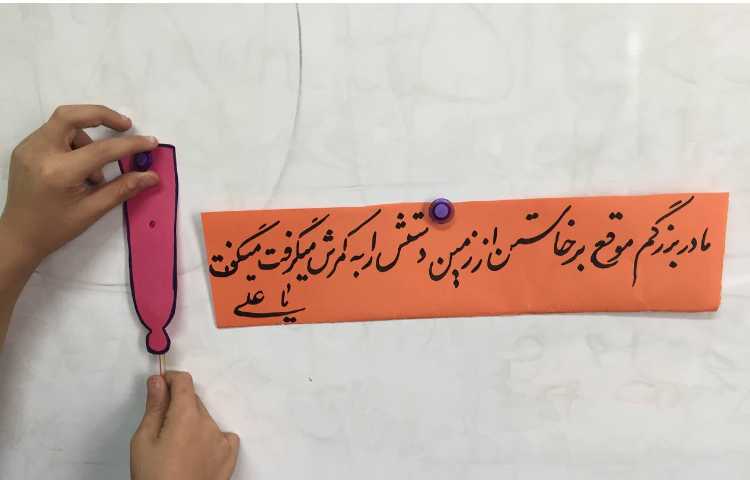 مادر بزرگم موقع برخاستن از زمین دستش را به کمرش میگرفت میگفت
یا علی